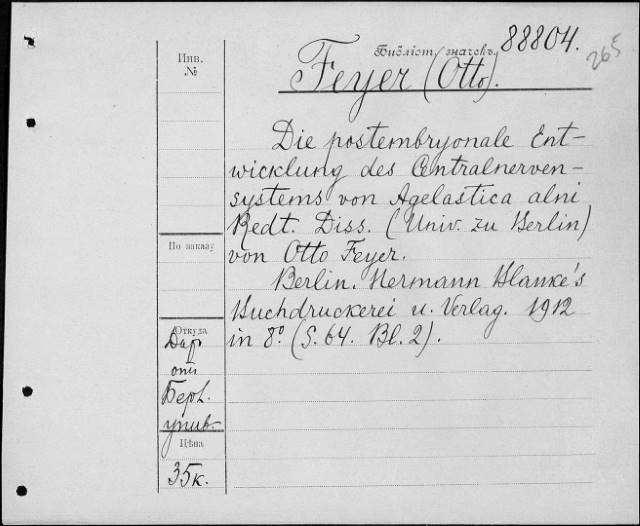 Библіот. значекъ 88804.
265
Feyer (Otto).
Инв.
№
Die postembryonale Ent-
wicklung des Centralnerven-
systems von Agelastica alni
Redt. Diss. (Univ. zu Berlin)
von Otto Feyer.
Berlin. Hermann Blanke's
Buchdruckerei u. Verlag. 1912
in 8º (S. 64. Bl. 2).
По заказу
Откуда
Дар
отъ
Берл.
унив.
Цѣна
35к.